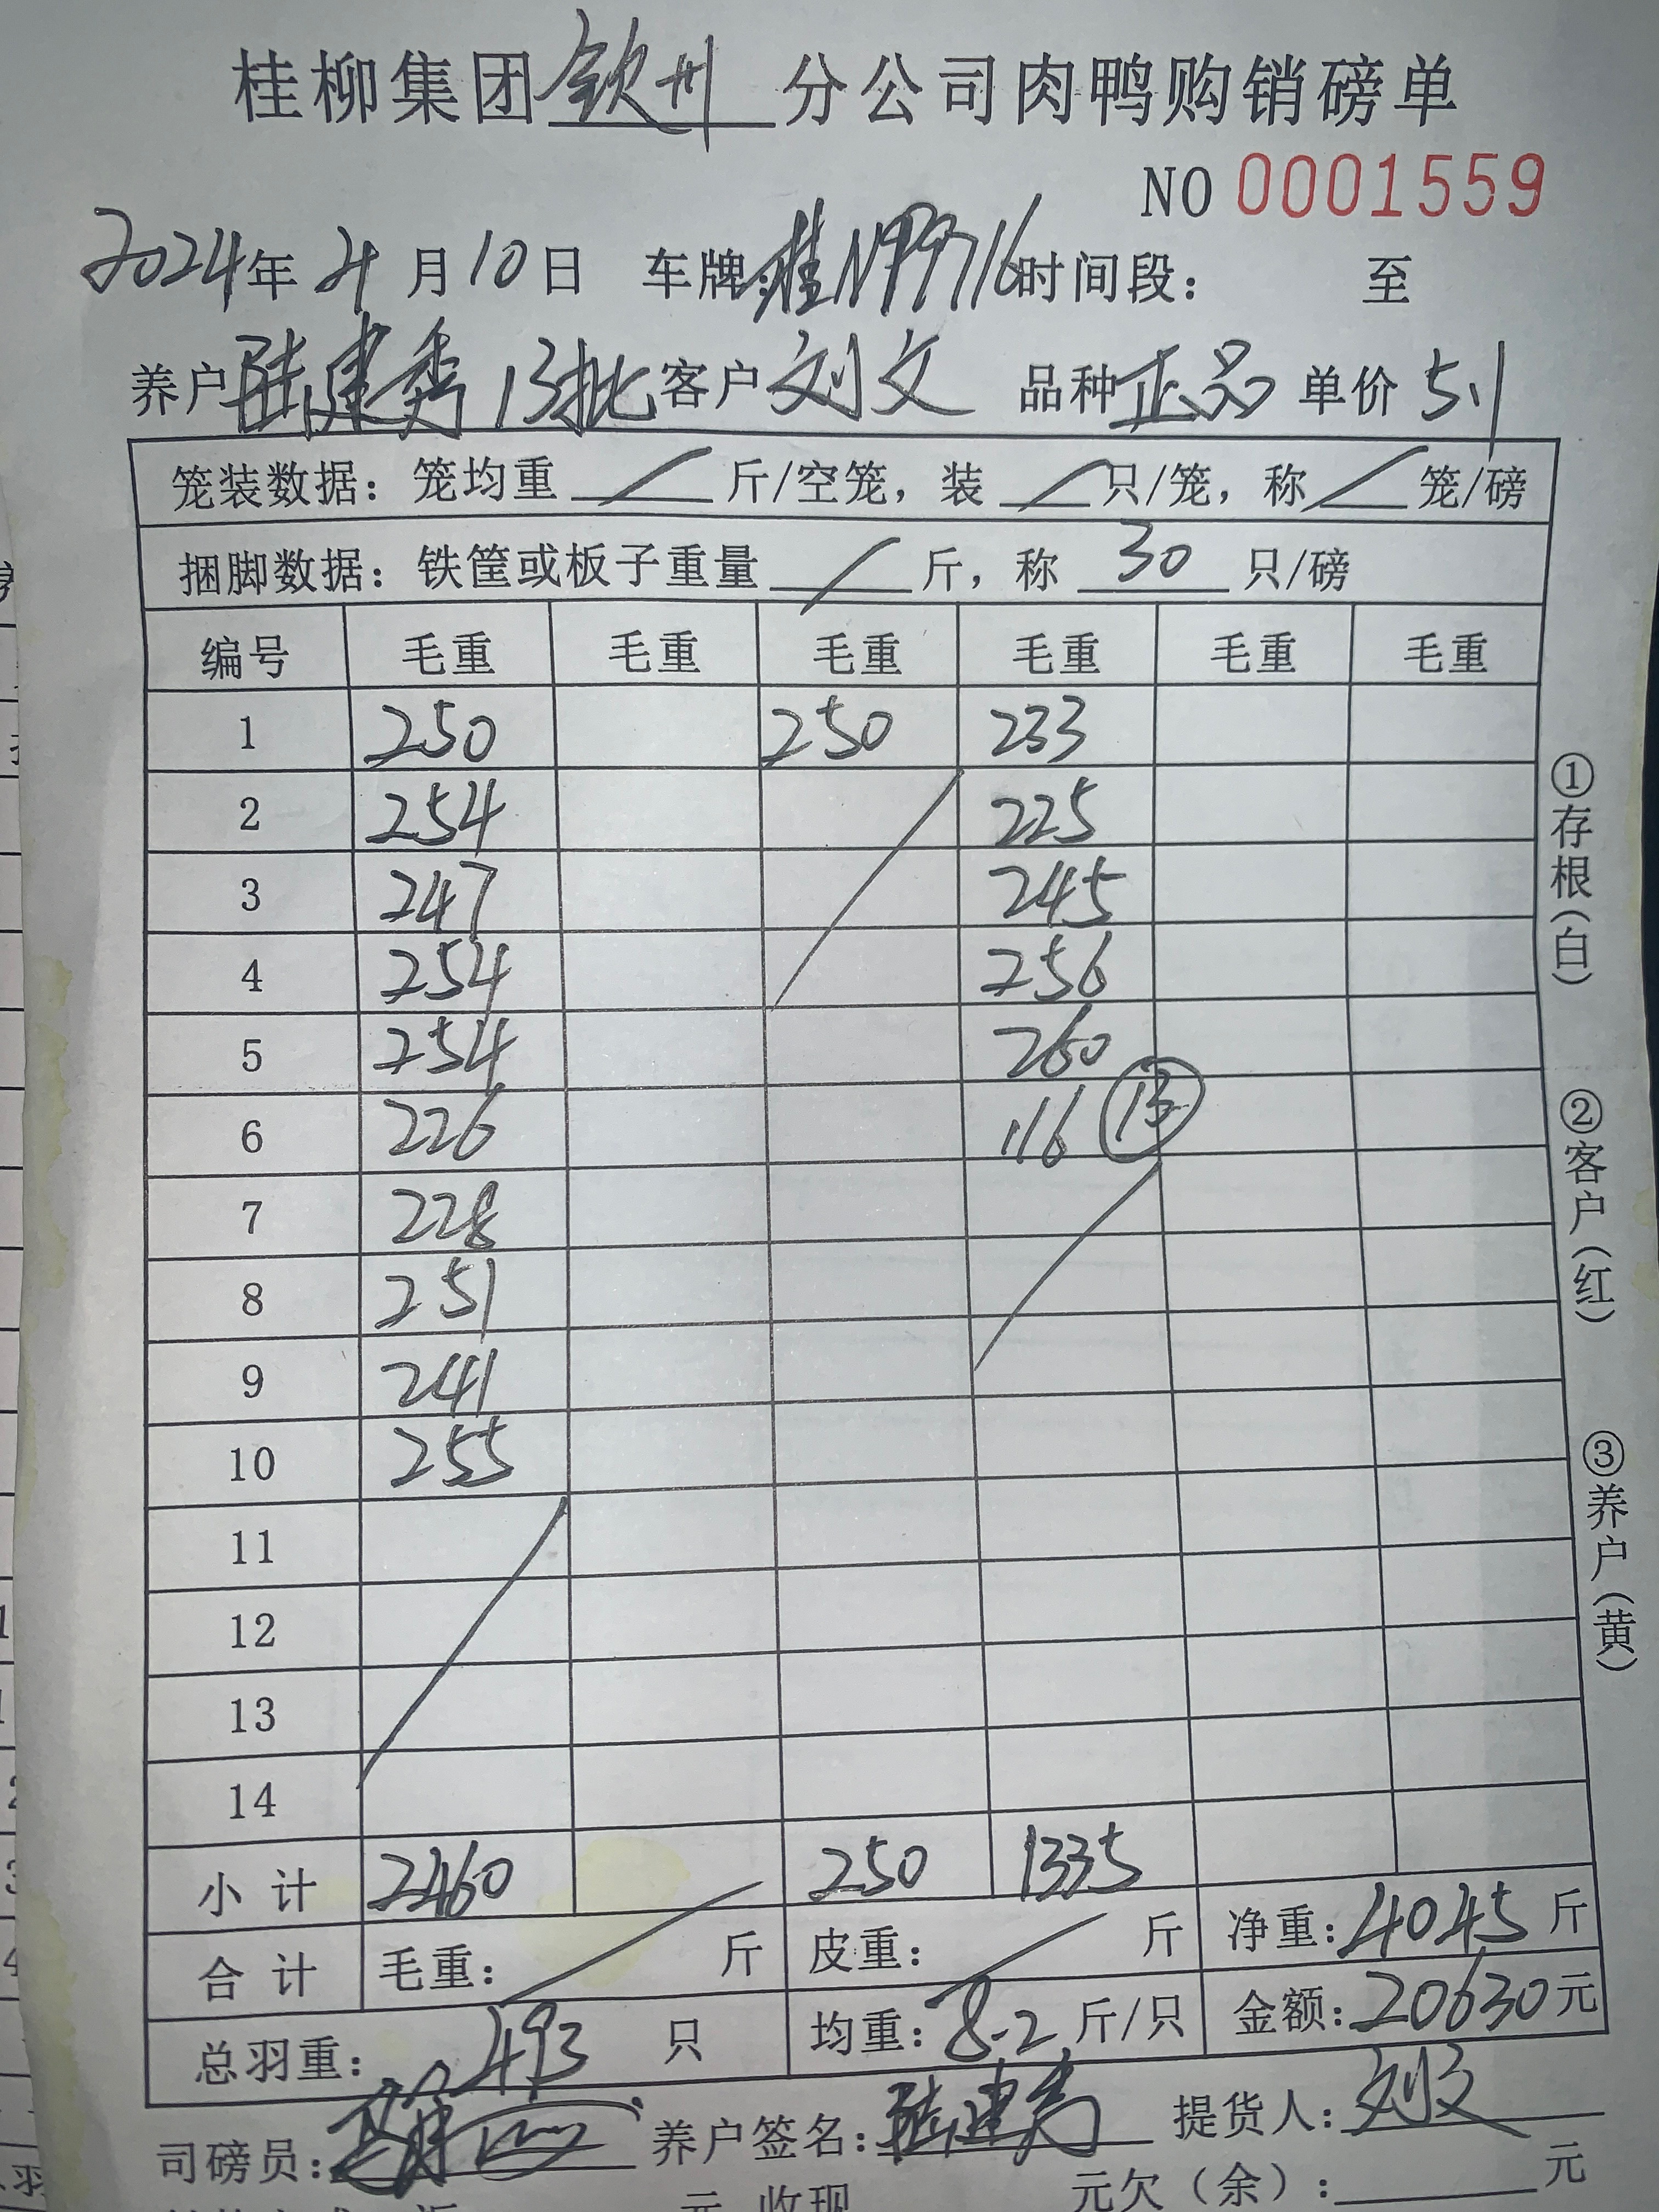 桂柳集团钦州分公司肉鸭购销磅单
NO 0001559
2024年4月10日 车牌:桂N99716 时间段: 至
养户 陆建秀 13批 客户 刘文 品种 正品 单价 5.1
笼装数据: 笼均重 / 斤/空笼, 装 / 只/笼, 称 / 笼/磅
捆脚数据: 铁筐或板子重量 / 斤, 称 30 只/磅
编号 毛重 毛重 毛重 毛重 毛重 毛重
1 250 250 233
2 254 225
3 247 245
4 254 256
5 254 260
6 226 116 13
7 228
8 251
9 241
10 255
11
12
13
14
小计 2460 250 1335
合计 毛重: / 斤 皮重: / 斤 净重: 4045 斤
总羽重: 493 只 均重: 8.2 斤/只 金额: 20630 元
司磅员: 养户签名: 陆建秀 提货人: 刘文
元 收现 元欠(余): 元
①存根(白)
②客户(红)
③养户(黄)